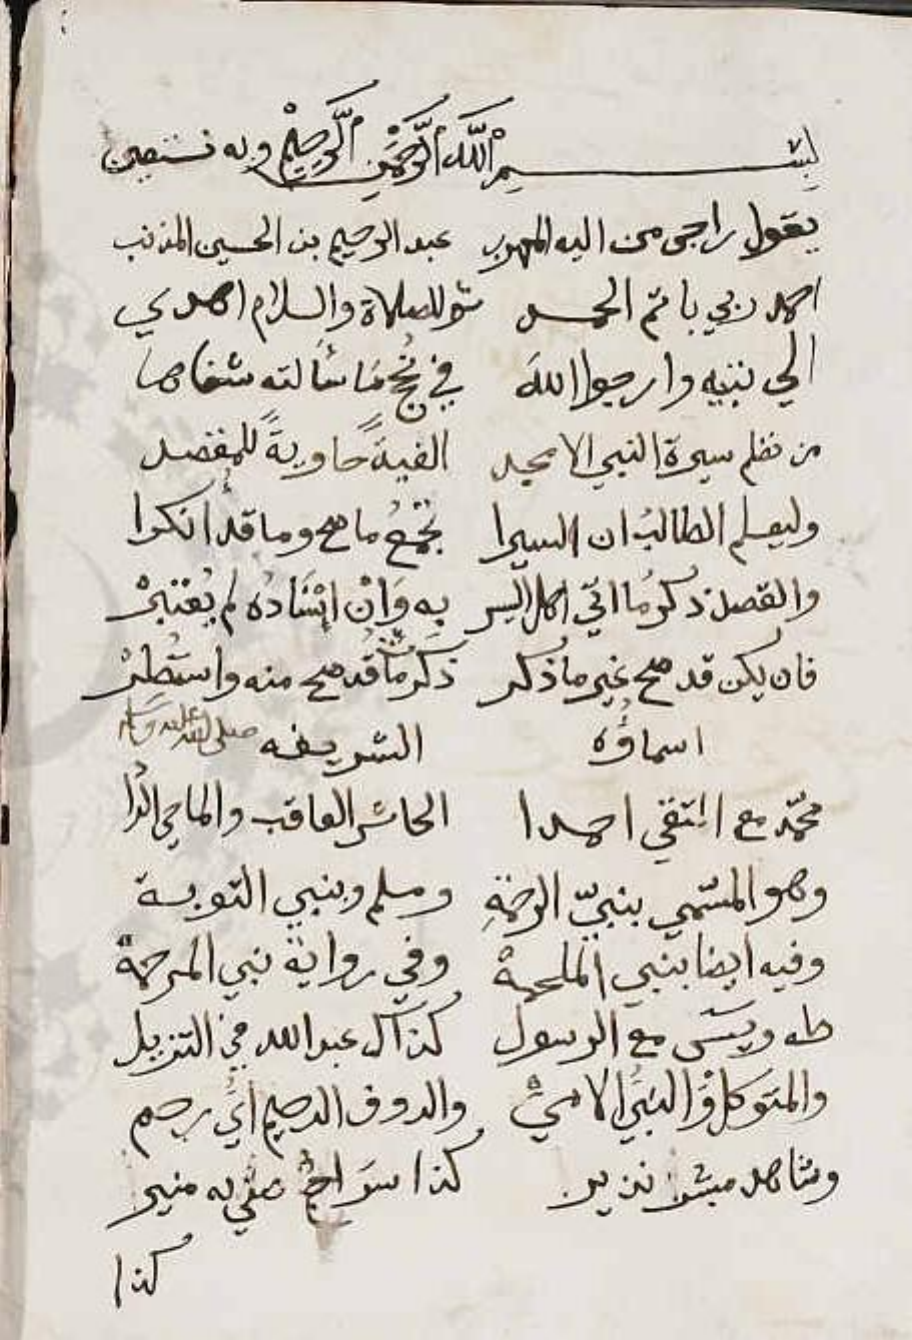 بِسْمِ اللّٰه الرَّحْمٰنِ الرَّحِيْمِ وبه نستعين
يقول راجى من اليه المهرب عبد الرحيم بن الحسين المذنب
احمد ربي باتم الحمد ثم للصلاة والسلام اهدي
الي نبيه وارجوا اللهَ في نُجْح مَا سُالته شفاها
من نظم سيرة النبي الامجد الفيةً حاويةً للمقصد
وليعلم الطالبُ ان السيرا تَجْمَعُ ما صح وما قد انكرا
والقصد ذكرُ ما اتي اهل السير بِه وَاِنْ اِسْنَادُه لم يُعْتبرْ
فان يكن قد صح غير ما ذكر ذكرت ما قد صح منه واستُطِرْ
اسماؤُه الشريفه صلى الله عليه وسلم
محمّد مع المتقفي احمدا الحاشر العاقب والماحي الرَّدا
وهو المسّمي بنبيّ الرحمةِ ومسلم وبنبي التوبة
وفيه ايضا بنبي الملحمة وفي رواية نبي المرحمة
طه ويسَى مع الرسول كذاك عبد الله في التنزيل
والمتوَكل وَالنبيَّ الامي والروف الرحيم ايُّ رحم
وشاهد مبشر نذير كذا سرَاج صلي به منير
كذا